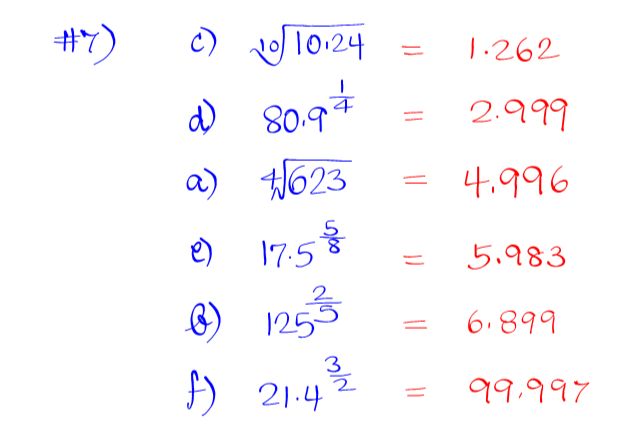 #7) c) ¹⁰√10.24 = 1.262
d) 80.9^(1/4) = 2.999
a) ⁴√623 = 4.996
e) 17.5^(5/8) = 5.983
b) 125^(2/5) = 6.899
f) 21.4^(3/2) = 99.997